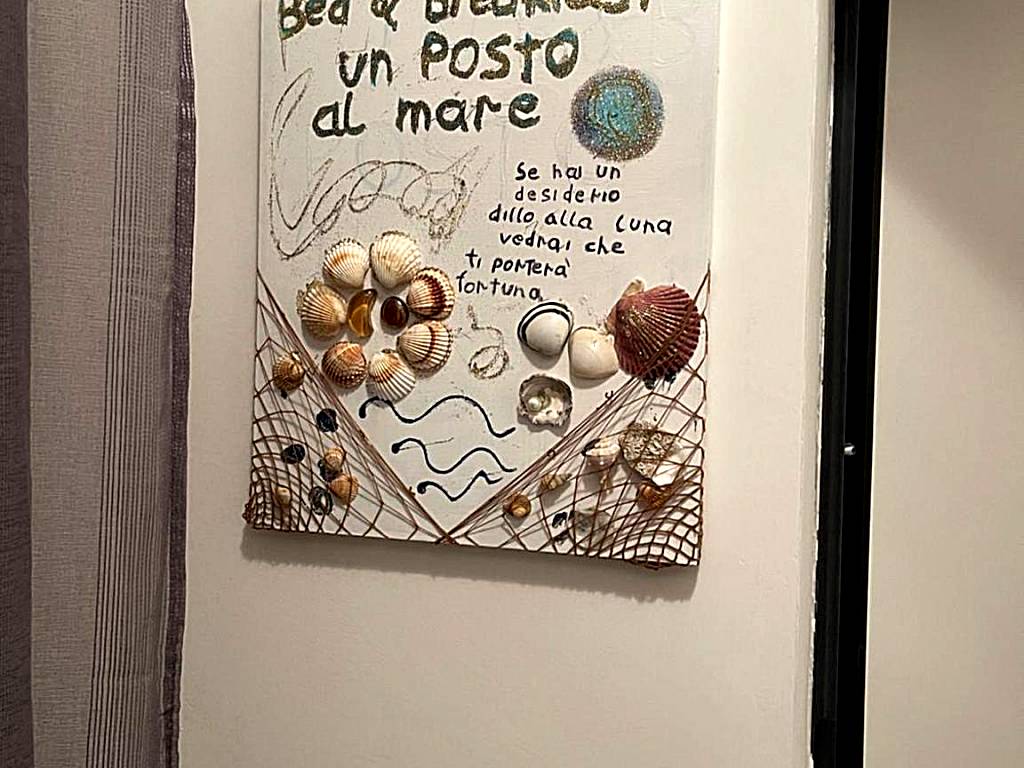 Bed & Breakfast
un POSTO
al mare
Se hai un
desiderio
dillo alla luna
vedrai che
ti porterà
fortuna